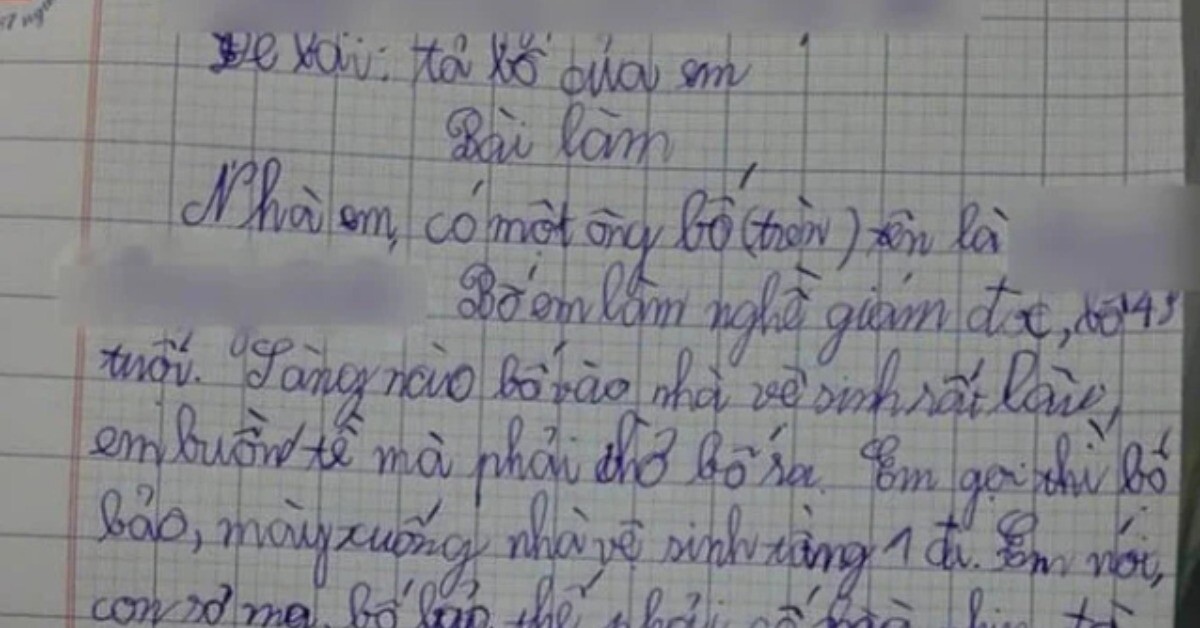 Đề bài: tả bố của em
Bài làm
Nhà em, có một ông bố (trần) tên là
Bố em làm nghề giám đốc, bố 43
tuổi. Sáng nào bố vào nhà vệ sinh rất lâu,
em buồn tè mà phải chờ bố ra. Em gọi thì bố
bảo, mày xuống nhà vệ sinh tầng 1 đi. Em nói,
con sợ ma, bố bảo thế phải cố